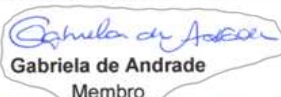 Gabriela de Andrade
Gabriela de Andrade
Membro